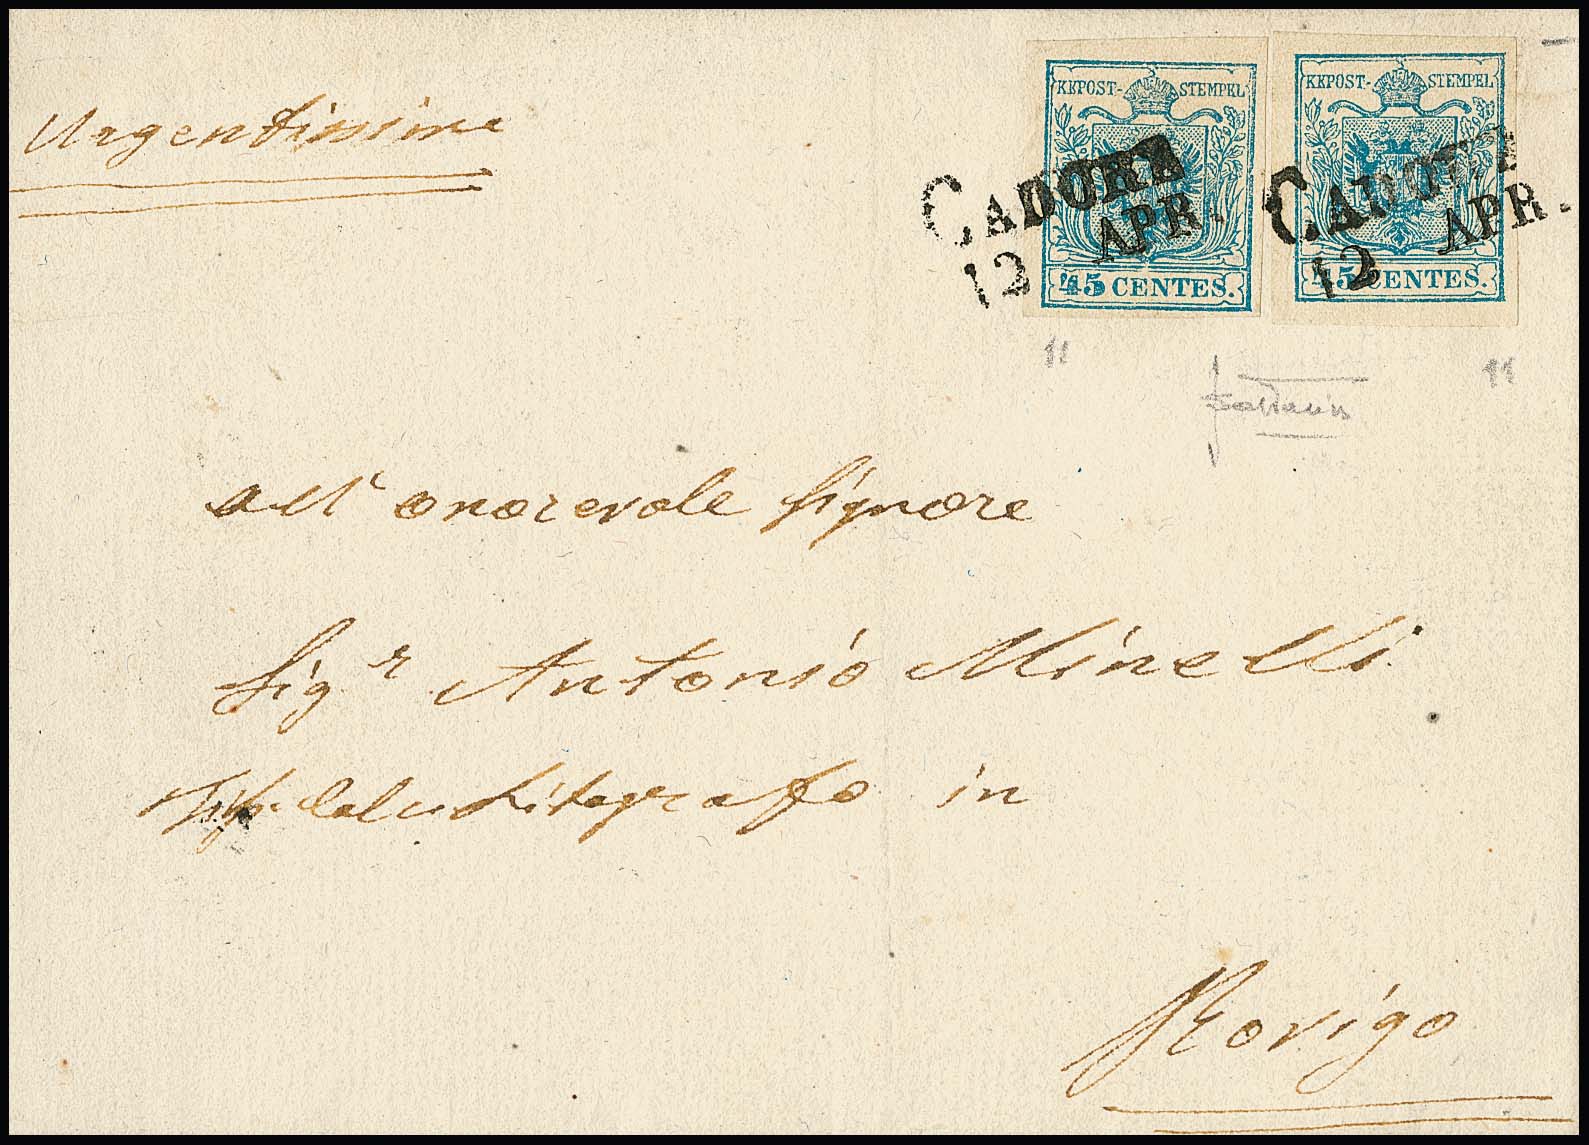 Urgentissima
KKPOST-STEMPEL
45 CENTES.
KKPOST-STEMPEL
45 CENTES.
CADORE
12 APR.
CADORE
12 APR.
11
11
all' onorevole Signore
Sigr Antonio Minelli
in
Rovigo